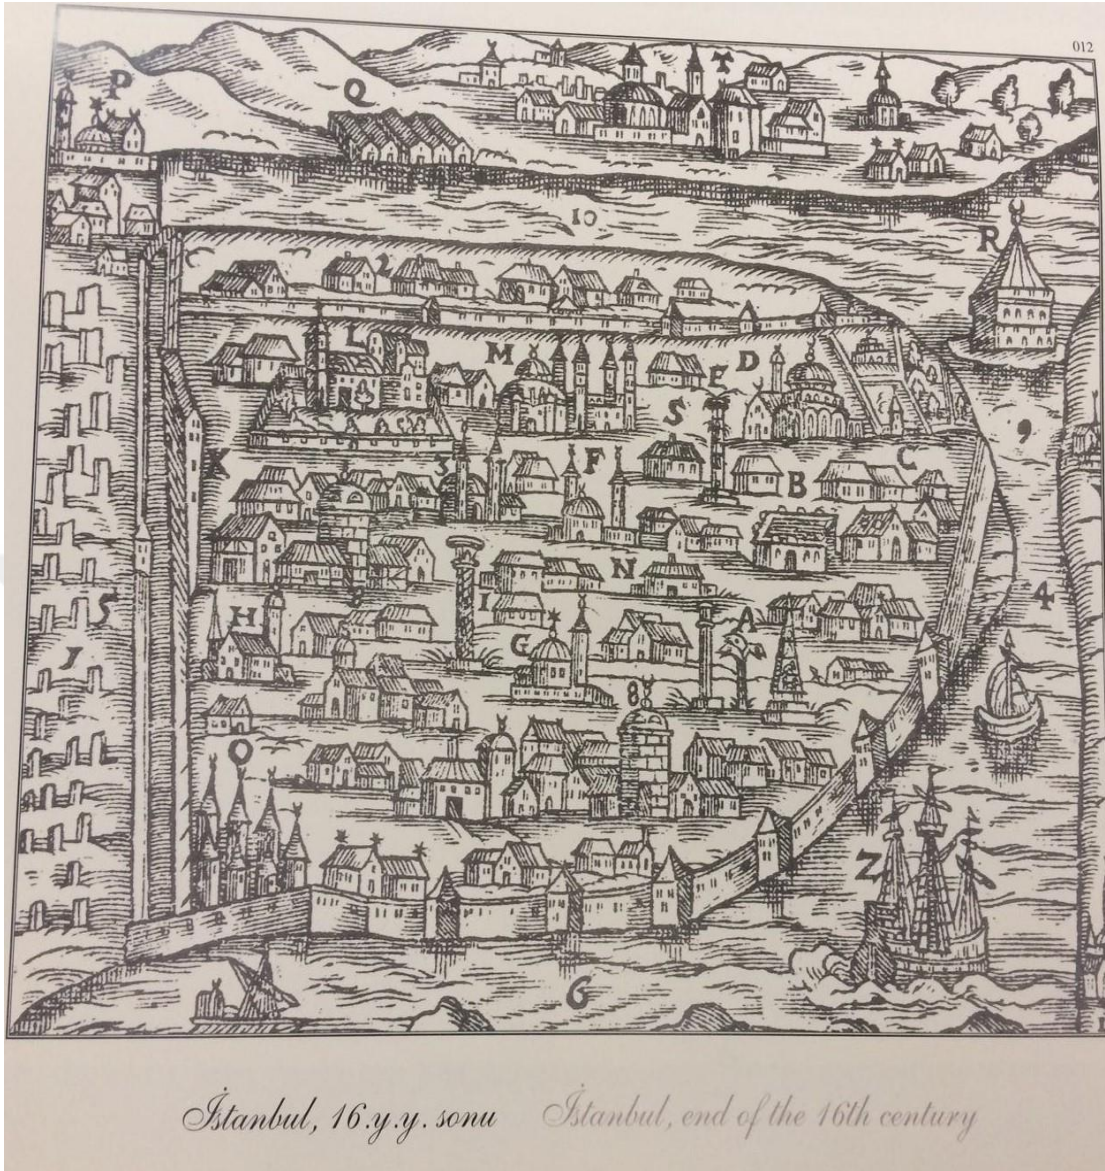 012
P
Q
T
10
R
2
L
M
D
E
S
9
K
3
F
B
C
N
5
4
H
I
A
G
8
O
Z
6
İstanbul, 16.y.y. sonu İstanbul, end of the 16th century